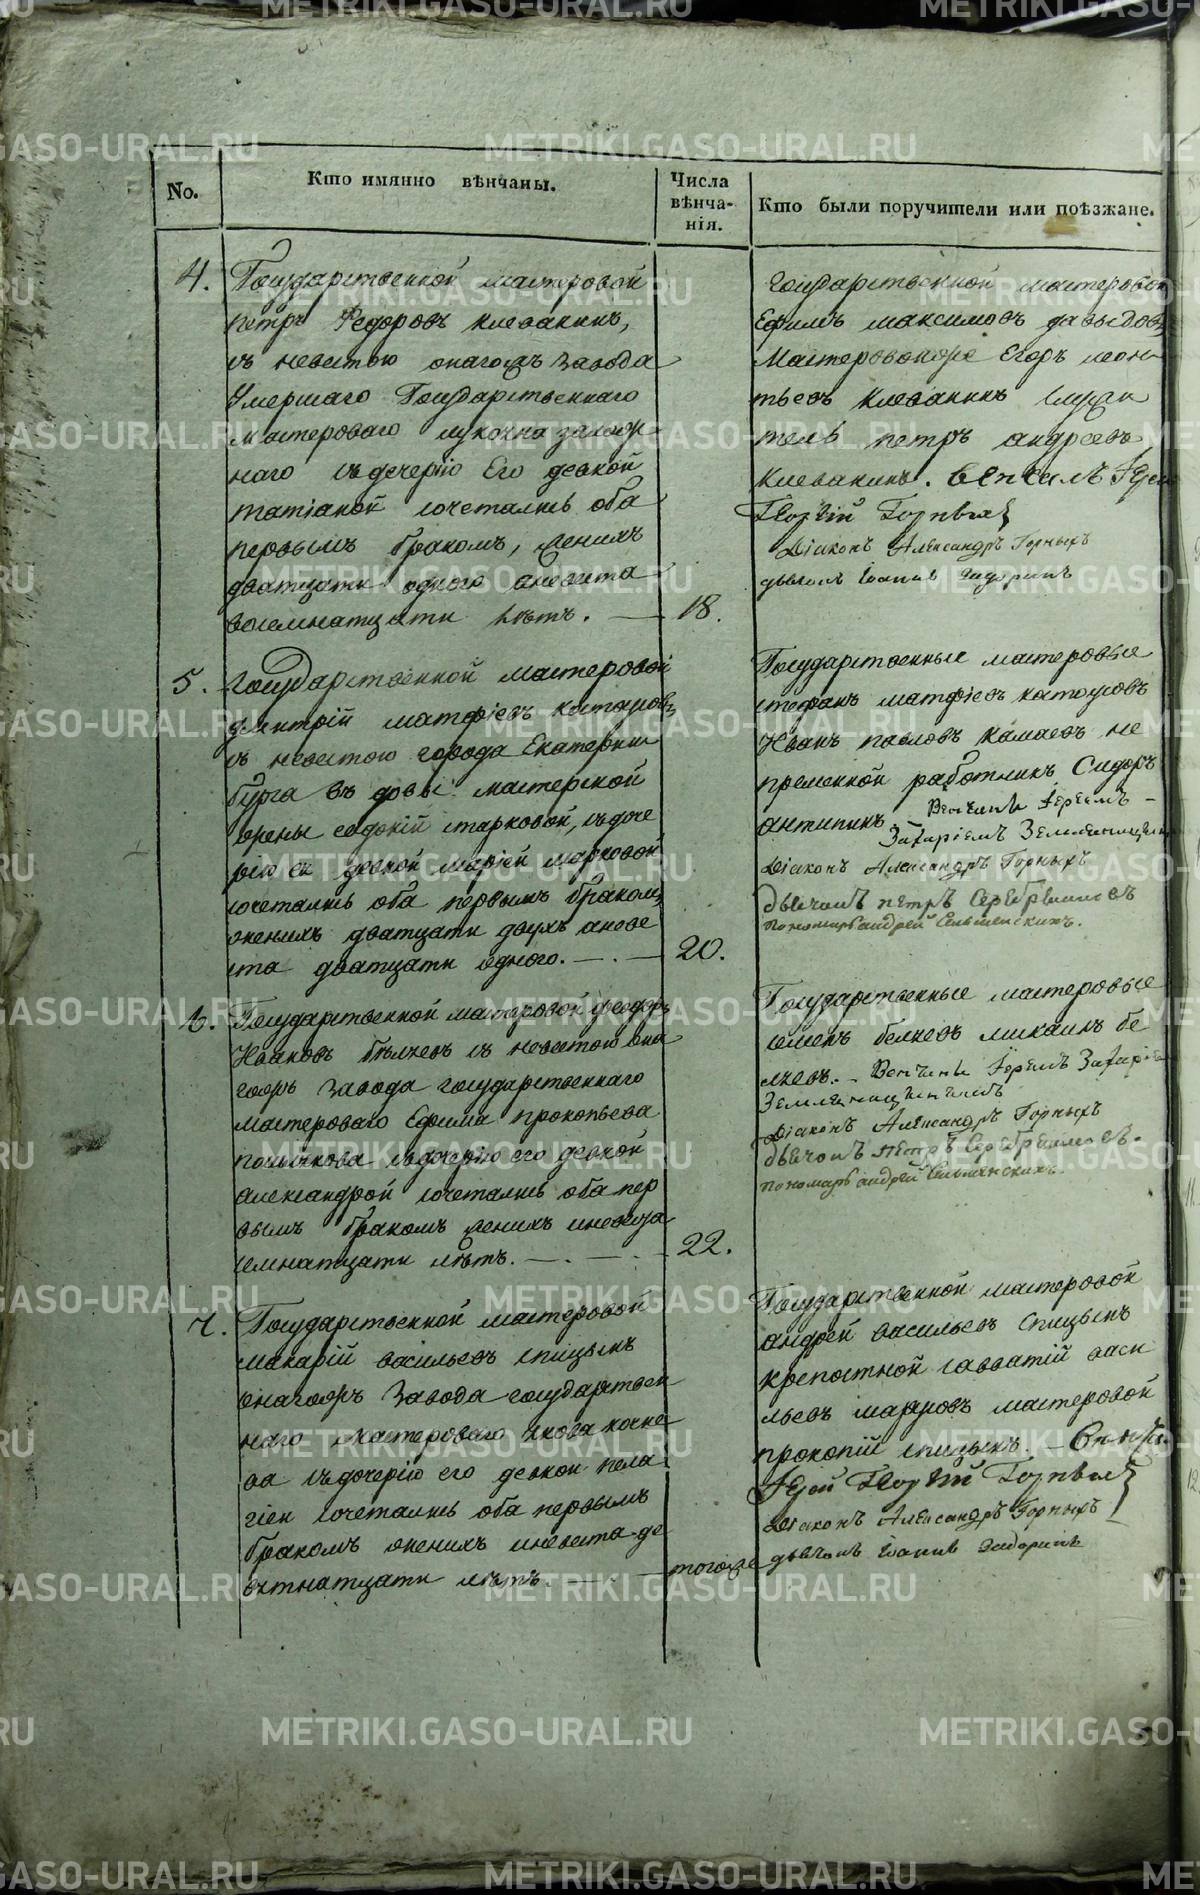 No.
Кто имянно вѣнчаны.
Числа
вѣнча-
нія.
Кто были поручители или поѣзжане.
4.
Государственной мастеровой
петръ Федоровъ клевакинъ,
съ невестою онагожъ завода
Умершаго Государственнаго
мастероваго
наго съдочерью Его девкой
татіаной сочетались оба
первымъ бракомъ, женихъ
дватцати одного аневеста
восемнатцати лѣтъ.
18.
Государственной мастеровой
Ефимъ максимовъ давыдовъ
Мастеровойже Егоръ леон
тьевъ клевакинъ служи
тель петръ андреевъ
клевакинъ. Венчалъ Іерей
Георгій Горныхъ
Діаконъ Александръ Горныхъ
дьячокъ Іоаннъ Сидоринъ
5.
Государственной мастеровой
дмитрій матфіевъ катаусовъ
съ невестою города Екатерин
бурга вдовы мастерской
жены евдокіи старковой, съдоче
рью ея девкой маріей марковой
сочетались оба первымъ бракомъ,
женихъ дватцати двухъ аневе
ста дватцати одного.
20.
Государственные мастеровые
стефанъ матфіевъ катаусовъ
Иванъ павловъ камаевъ не
пременной работникъ Сидоръ
антипинъ Венчаны Іереемъ
Захаріемъ Земляницынымъ
Діаконъ Александръ Горныхъ
Дьячокъ петръ Серебренниковъ
пономарь андрей Сельменскихъ.
6.
Государственной мастеровой феодоръ
Ивановъ бѣляевъ съ невестою она
гожъ завода государственнаго
мастероваго Ефима прокопьева
съдочерью его девкой
александрой сочетались оба пер
вымъ бракомъ женихъ иневеста
семнатцати лѣтъ.
22.
Государственные мастеровые
семенъ беляевъ михаилъ бе
ляевъ. Венчаны Іереемъ Захаріемъ
Земляницынымъ
Діаконъ Александръ Горныхъ
дьячокъ петръ Серебренниковъ.
пономарь андрей Сельменскихъ.
7.
Государственной мастеровой
макарій васильевъ спицынъ
онагожъ завода государствен
наго мастероваго якова
ва съдочерью его девкой пела
гіей сочетались оба первымъ
бракомъ женихъ иневеста де
вятнатцати лѣтъ.
тогоже
Государственной мастеровой
андрей васильевъ спицынъ
крепостной савватій васи
льевъ мастеровой
прокопій спицынъ. Венчалъ
Іерей Георгій Горныхъ
Діаконъ Александръ Горныхъ
дьячокъ Іоаннъ Сидоринъ
METRIKI.GASO-URAL.RU